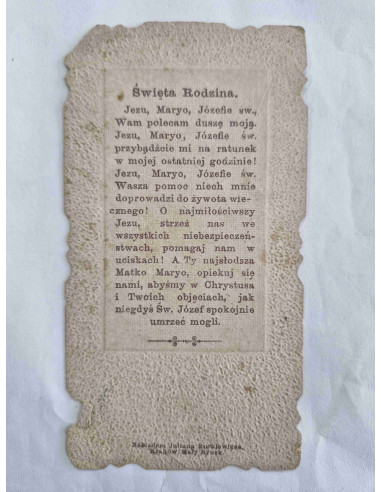 Święta Rodzina.
Jezu, Maryo, Józefie św.,
Wam polecam duszę moją.
Jezu, Maryo, Józefie św.
przybądźcie mi na ratunek
w mojej ostatniej godzinie!
Jezu, Maryo, Józefie św.
Wasza pomoc niech mnie
doprowadzi do żywota wie-
cznego! O najmiłościwszy
Jezu, strzeż nas we
wszystkich niebezpieczeń-
stwach, pomagaj nam w
uciskach! A Ty najsłodsza
Matko Maryo, opiekuj się
nami, abyśmy w Chrystusa
i Twoich objęciach, jak
niegdyś Św. Józef spokojnie
umrzeć mogli.
Nakładem Juliana
Kraków, Mały Rynek.